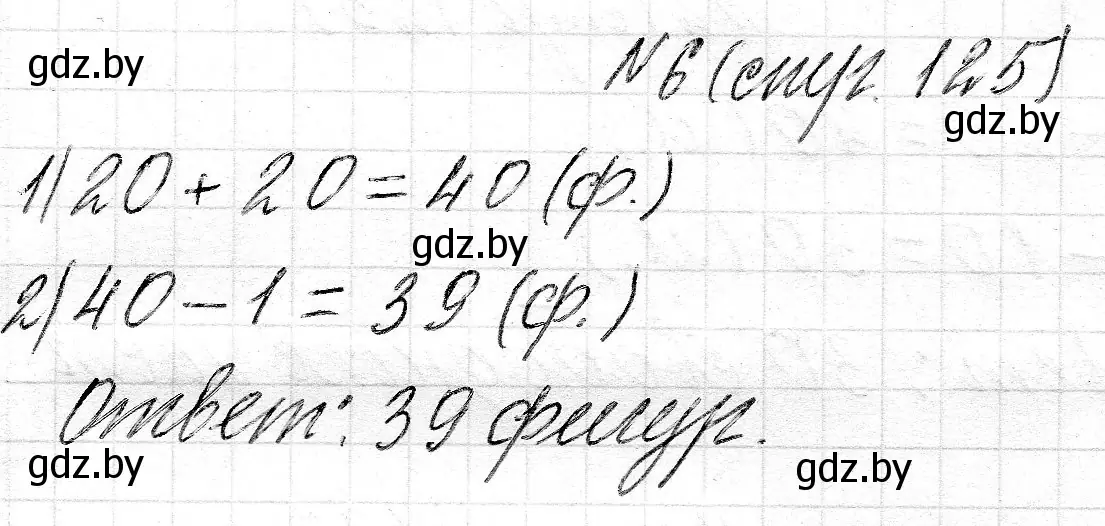 gdz.by
№ 6 (стр. 125)
gdz.by
1) 20 + 20 = 40 (ф.)
gdz.by
2) 40 - 1 = 39 (ф.)
Ответ: 39 фигур.
gdz.by
gdz.by